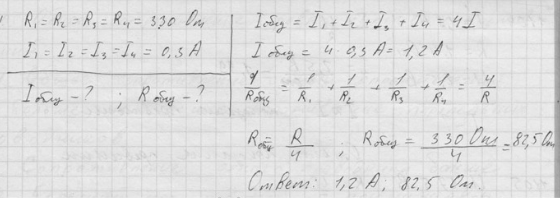 R₁ = R₂ = R₃ = R₄ = 330 Ом
I₁ = I₂ = I₃ = I₄ = 0,3 А
I общ - ? ; R общ - ?
I общ = I₁ + I₂ + I₃ + I₄ = 4I
I общ = 4 · 0,3 А = 1,2 А
1/R общ = 1/R₁ + 1/R₂ + 1/R₃ + 1/R₄ = 4/R
R общ = R/4 ; R общ = 330 Ом/4 = 82,5 Ом
Ответ: 1,2 А; 82,5 Ом.